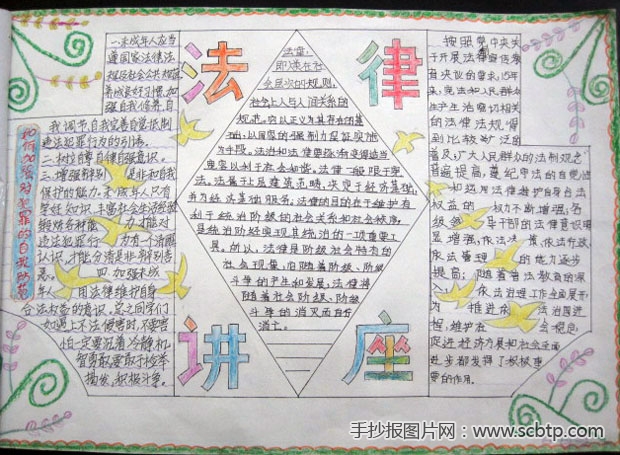 法律
讲座
如何加强对犯罪的自我防范
一.未成年人应当
遵国家法律法
规及社会公共规范
养成良好习惯,加
强自我修养、自
我调节、自我完善、自觉抵制
违法犯罪行为的引诱。
二.树立自尊自律自强意识。
三.增强辨别是非和自我
保护的能力。未成年人只有
学好知识,丰富社会生活经验
锻炼各种能力,才能对
违法犯罪行为有一个清醒
认识,才能分清是非,辨别善
恶。四.加强未成
年人用法律维护自身
合法权益的意识。总之同学们
如遇上不法侵害时,不要害
怕一定要沉着冷静,机
智勇敢,要敢于检举
揭发、积极斗争。
法律,
即是在社
会层次的规则,
社会上人与人之间关系的
规范,它以正义为其存在的基
础,以国家的强制力保证实施
为手段。法治和法律要逐渐变得适当
宽容以利于社会和谐。法律一般限于宪
法。法属于上层建筑范畴,决定于经济基础,
并为经济基础服务。法律的目的在于维护有
利于统治阶级的社会关系和社会秩序,
是统治阶级实现其统治的一项重要工
具。所以,法律是阶级社会特有的
社会现象,它随着阶级、阶级
斗争的产生和发展,法律将
随着社会阶级、阶级
斗争的消灭而自行
消亡。
按照党中央关
于开展法制宣传教
育决议的要求,15年
来,宪法和人民群众
生产生活密切相关
的法律法规得
到比较广泛的
普及,广大人民群众的法制观念
普遍提高,遵纪守法的自觉性
和运用法律维护自身合法
权益的能力不断增强;各
级领导干部的法律意识明
显增强,依法决策、依法行政、
依法管理的能力逐步
提高;随着普法教育的深
入,依法治理工作全面展开,
为推进依法治国进
程,维护社会稳定,
促进经济发展和社会全面
进步都发挥了积极重
要的作用。
手抄报图片网:www.scbtp.com